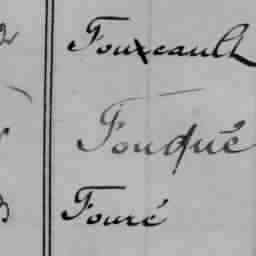 Fouxcault
Fouqué
Fouré